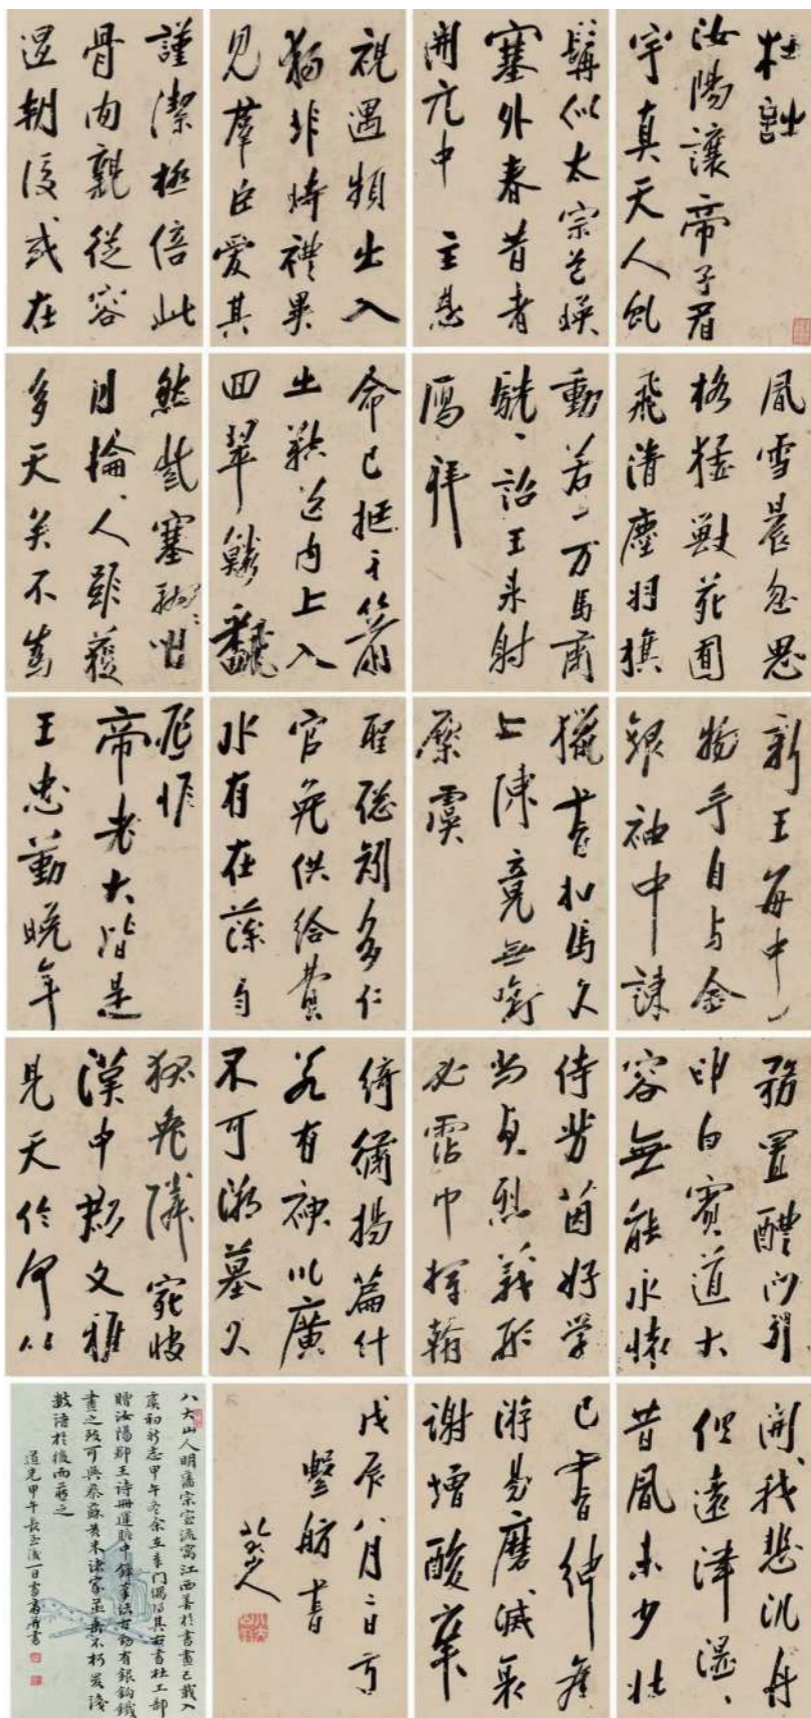 杜詩
汝陽讓帝子眉
宇真天人虬
髯似太宗色映
塞外春昔者
開元中 主恩
視遇頻出入
獨非時禮異
見羣臣愛其
謹潔極倍此
骨肉親從容
退朝後或在
風雪晨忽思
格猛獸苑囿
飛清塵羽旗
動若一万馬肅
駪駪詔王來射
雁拜
命已挺身箭
出飛鞚內上又
回翠鱗翻
然紫塞翮
月輪人雖獲
多天笑不為
新王每中一
物手自与金
銀袖中諫
獵書扣馬久
上陳竟無銜
橛虞
聖聰矧多仁
官免供給費
水有在藻鱗
匪惟
帝老大皆是
王忠勤晚年
務置醴門引
申白賓道大
容無能永懷
侍芳茵好学
尚貞烈義形
必霑巾揮翰
綺繡揚篇什
若有神川廣
不可溯墓久
狐兔隣宛彼
漢中郡文雅
見天倫何以
開我悲汎舟
俱遠津溫溫
昔風味少壯
已書紳舊
游易磨滅衰
謝增酸辛
戊辰八月二日
書
八大山人
八大山人明藩宗室流寓江西善於書畫已載入
虞初新志甲午冬余在都門偶得其所書杜工部
贈汝陽郡王詩冊運腕中鋒筆法古勁有銀鈎鐵
畫之致可與蔡蘇黃米諸家並垂不朽爰綴
數語於後而藏之
道光甲午長至後一日